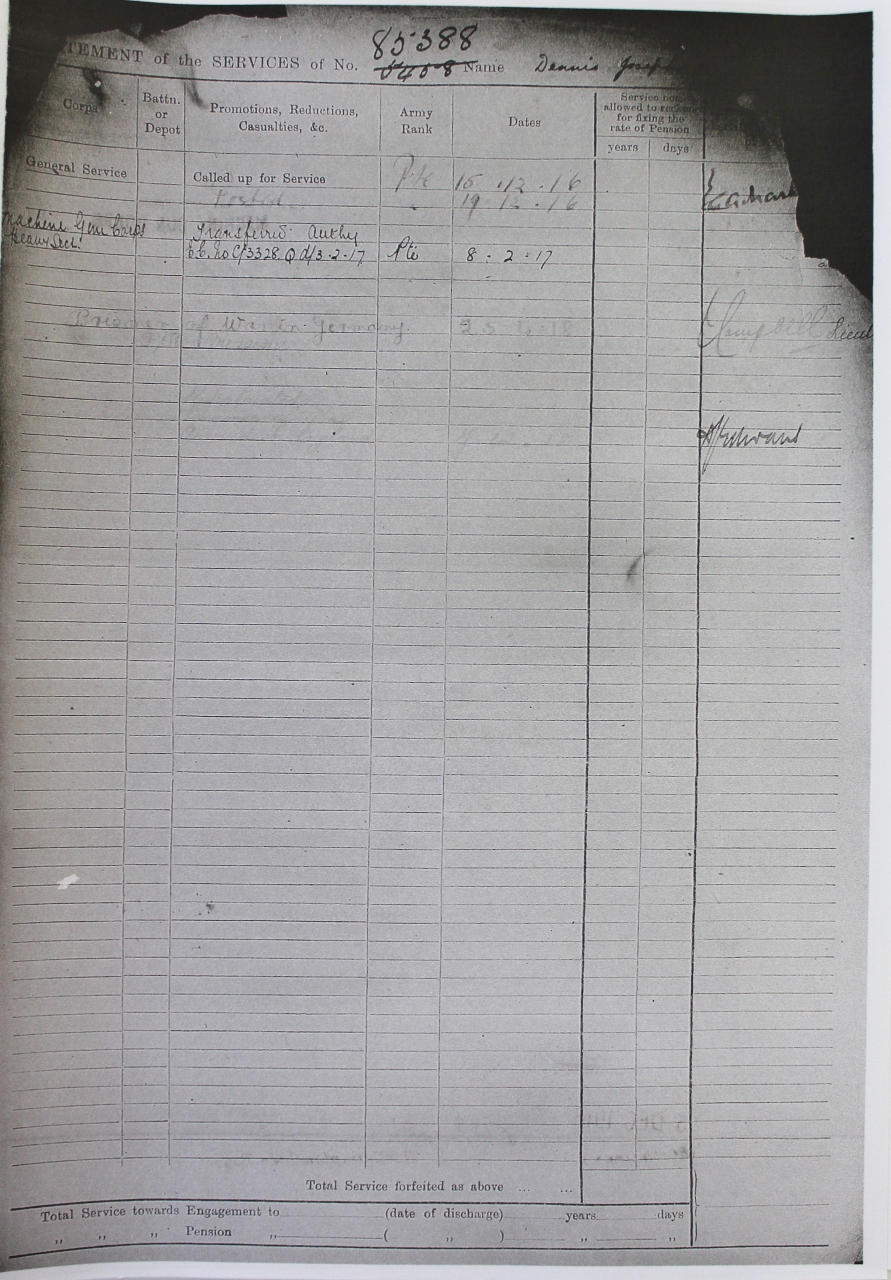 85388
TEMENT of the SERVICES of No. Name Dennis
Corps
Battn. or Depot
Promotions, Reductions, Casualties, &c.
Army Rank
Dates
Service not allowed to reckon for fixing the rate of Pension
years days
General Service Called up for Service Pte 15 . 12 . 16
Posted " 19 . 12 . 16
Machine Gun Corps Transferred Authy
Heavy Sect. No C/3328 Q d/3.2.17 Pte 8 . 2 . 17
Prisoner of War in Germany. Campbell Lieut
Total Service forfeited as above ... ...
Total Service towards Engagement to (date of discharge) years days
„ „ „ Pension „ ( „ ) „ „